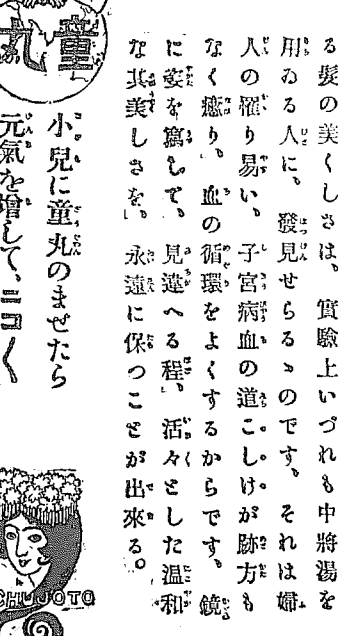 る髮の美くしさは。實驗上いづれも中將湯を
用ゐる人に、發見せらるゝのです。それは婦
人の罹り易い、子宮病血の道こしけが跡方も
なく癒り、血の循環をよくするからです。鏡
に姿を寫して、見違へる程、活々とした温和
な其美しさを、永遠に保つことが出來る。
小兒に童丸のませたら
元氣を增して、ニコ〱
童丸
CHUJOTO